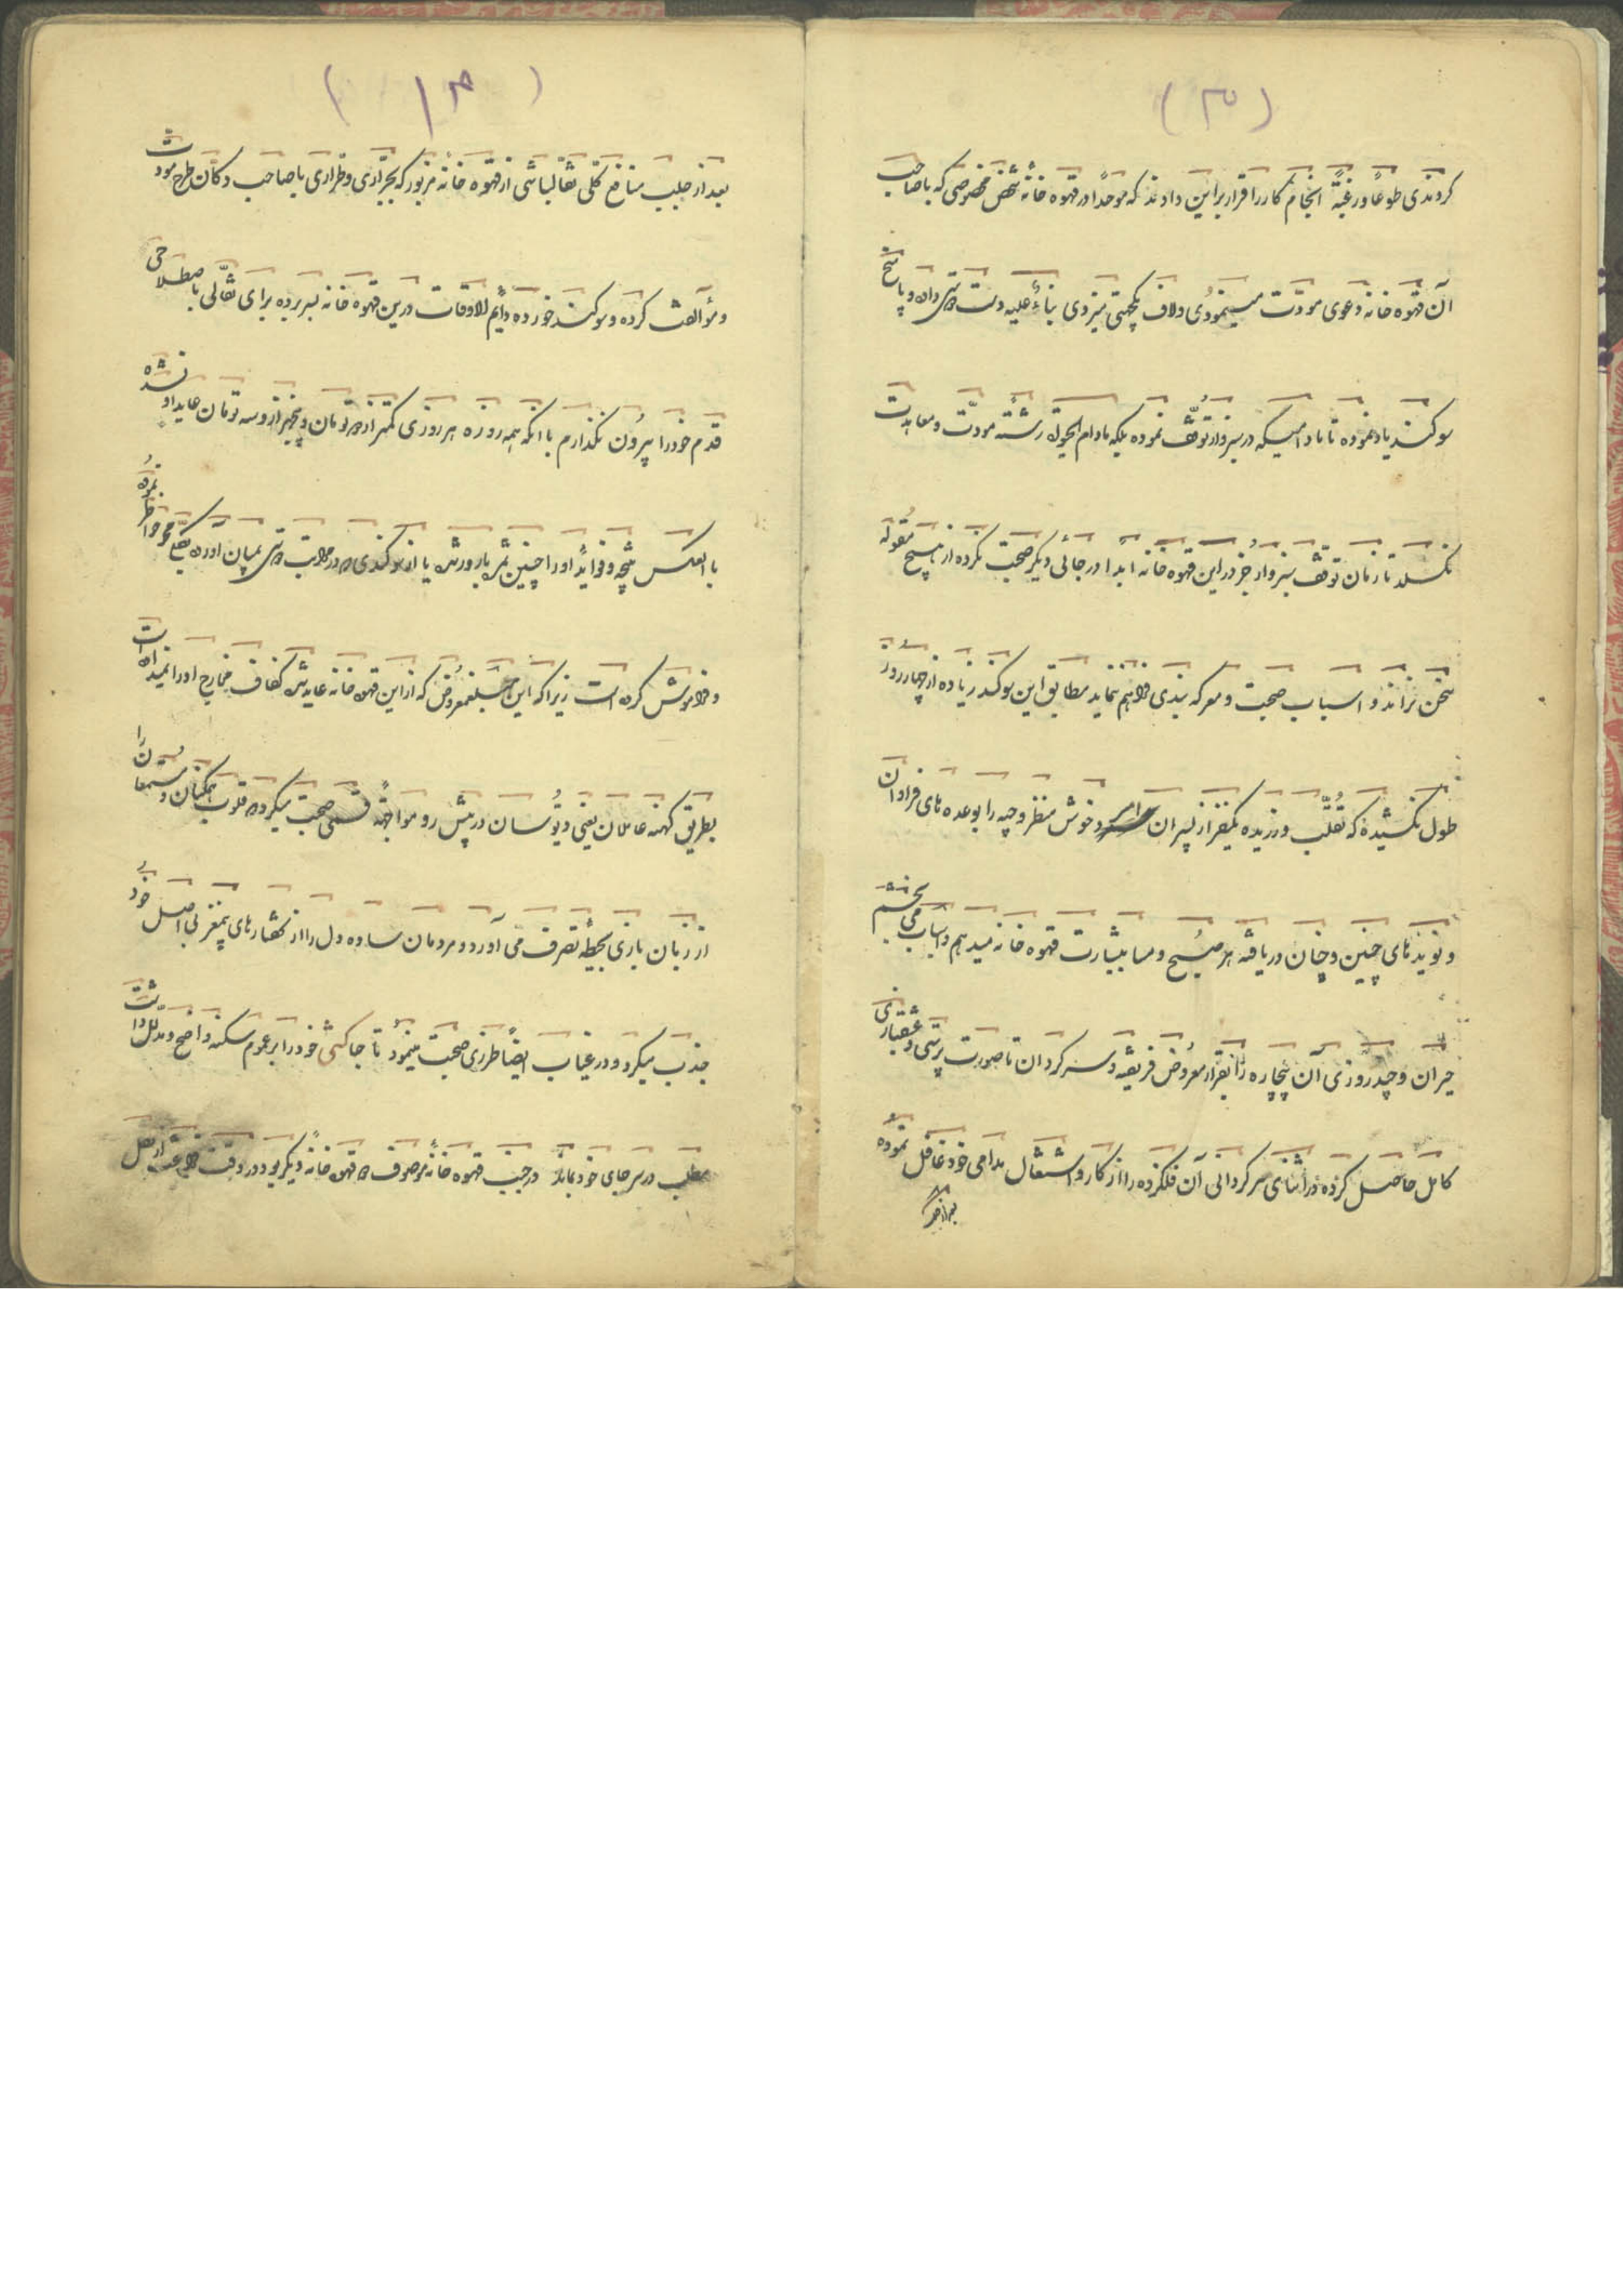 (۳)
کردندی طوعاً ورغبةً انجام کار را قرار براین دادند که موحداً در قهوه خانه شخص مخصوصی که باصاحب
آن قهوه خانه دعوی مودّت مینمودی ولاف یکجهتی میزدی بناءً علیه دست داده و پاسخ
سوکند یاد نموده تا مادامیکه در سبزوار توقّف نموده بلکه مادام الحیوة رشته مودّت ومعاهدت
نکسلد تا زمان توقّف سبزوار جز در این قهوه خانه ابداً در جائی دیکر صحبت نکرده از هیچ مقوله
سخن نراند و اسباب صحبت و معرکه بندی فراهم ننماید مطابق این سوکند زیاده از چهار روز
طول نکشیده که تقلّب ورزیده یکنفر از پسران وخوش منظر وجیه را بوعده های فراوان
و نویدهای چنین و چنان دریافته هر صبح و مسا بشارت قهوه خانه میدهم واسباب می بخشم
حیران و چند روزی آن بیچاره را بقرار معروض فریفته و سرکردان تا صورت پرستی و عشقبازی
کامل حاصل کرده در اثنای سرکردانی آن فلکزده را از کار و اشتغال مدامی خود غافل نموده
بعد از
بعد از جلب منافع کلی نقالباشی از قهوه خانه مزبور که بچرّاری وطرّاری باصاحب دکّان طرح مودت
ومؤالفت کرده وسوکند خورده دایم الاوقات درین قهوه خانه بسر برده برای نقّالی باصطلاحی
قدم خود را بیرون نکذارم با انکه همه روزه هر روزی کمتر از دو تومان و بیشتر از سه تومان عاید او نشده
بالعکس نتیجه وفوائد او را چنین ثمر بارور شد یا از سوکندی که در میان آورده بکلّی محو خواطر نموده
وفراموش کرده است زیرا که این مبلغ معروض که از این قهوه خانه عاید شد کفاف مخارج او را نمیداده است
بطریق کهنه عاملان یعنی دیّوسان در پیش رو مواجهةً قسمی صحبت میکرد که قلوب همکنان و مستمعان را
از زبان بازی بحیطه تصرف می آورد و مردمان ساده دل را از کفتارهای بیمغز بی اصل خود
جذب میکرد و در غیاب ایضاً طرزی صحبت مینمود تا جاکشی خود را بر عموم سکنه واضح و مدلل داشت
مطلب در سر جای خود بماند در جنب قهوه خانه موصوف قهوه خانه دیکر بود در وقت فراغت از نقل